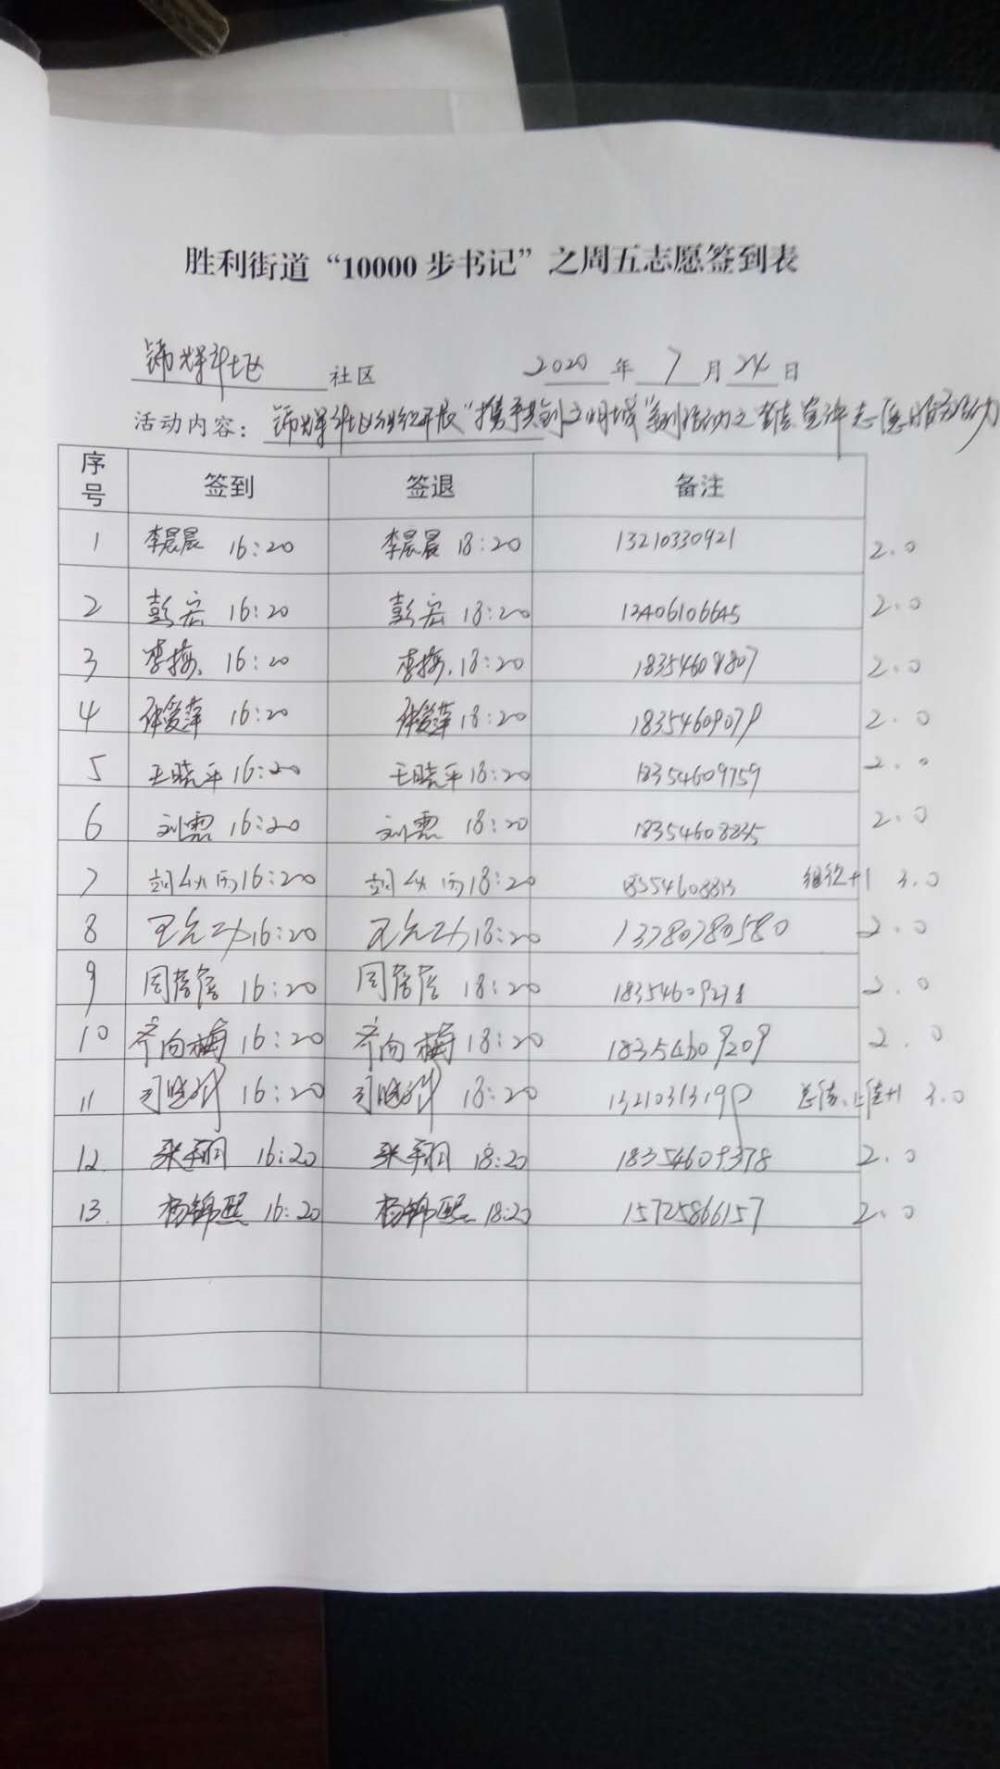 胜利街道“10000步书记”之周五志愿签到表
锦辉社区 社区 2020年7月24日
活动内容：锦辉社区组织开展“携手共创文明城”系列活动之 志愿服务活动
序号 签到 签退 备注
1 李晨晨 16:20 李晨晨 18:20 13210330921 2.0
2 彭宏 16:20 彭宏 18:20 12406106645 2.0
3 李梅 16:20 李梅 18:20 18354608807 2.0
4 张爱萍 16:20 张爱萍 18:20 18354609079 2.0
5 王晓平 16:20 王晓平 18:20 18354609759 2.0
6 刘霞 16:20 刘霞 18:20 18354608835 2.0
7 16:20 18:20 组织+1 3.0
8 16:20 18:20 13780780580 2.0
9 周蓓蓓 16:20 周蓓蓓 18:20 18354609238 2.0
10 齐向梅 16:20 齐向梅 18:20 18354609209 2.0
11 16:20 18:20 13210313199 3.0
12 张翔 16:20 张翔 18:20 18354609378 2.0
13 杨锦熙 16:20 杨锦熙 18:20 15725866157 2.0